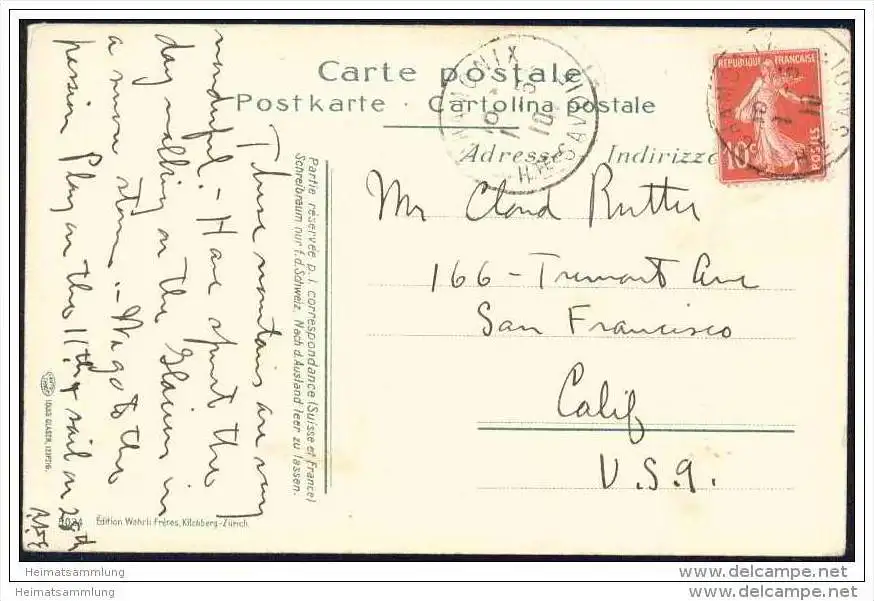 Carte postale
Postkarte · Cartolina postale
Adresse Indirizzo
CHAMONIX
HTE SAVOIE
REPUBLIQUE FRANÇAISE
10c
POSTES
Mr Claud Rutter
166 - Tremont Ave
San Francisco
Calif
U.S.A.
Partie réservée p. l. correspondance (Suisse et France)
Schreibraum nur f. d. Schweiz. Nach d. Ausland leer zu lassen.
These mountains are very
wonderful. - Have spent the
day walking on the Glaciers in
a snow storm. - We go to the
Passion Play on the 11th & sail on 25th
LOUIS GLASER, LEIPZIG.
Edition Wehrli Frères, Kilchberg-Zürich.
Heimatsammlung
www.delcampe.net
Heimatsammlung
www.delcampe.net